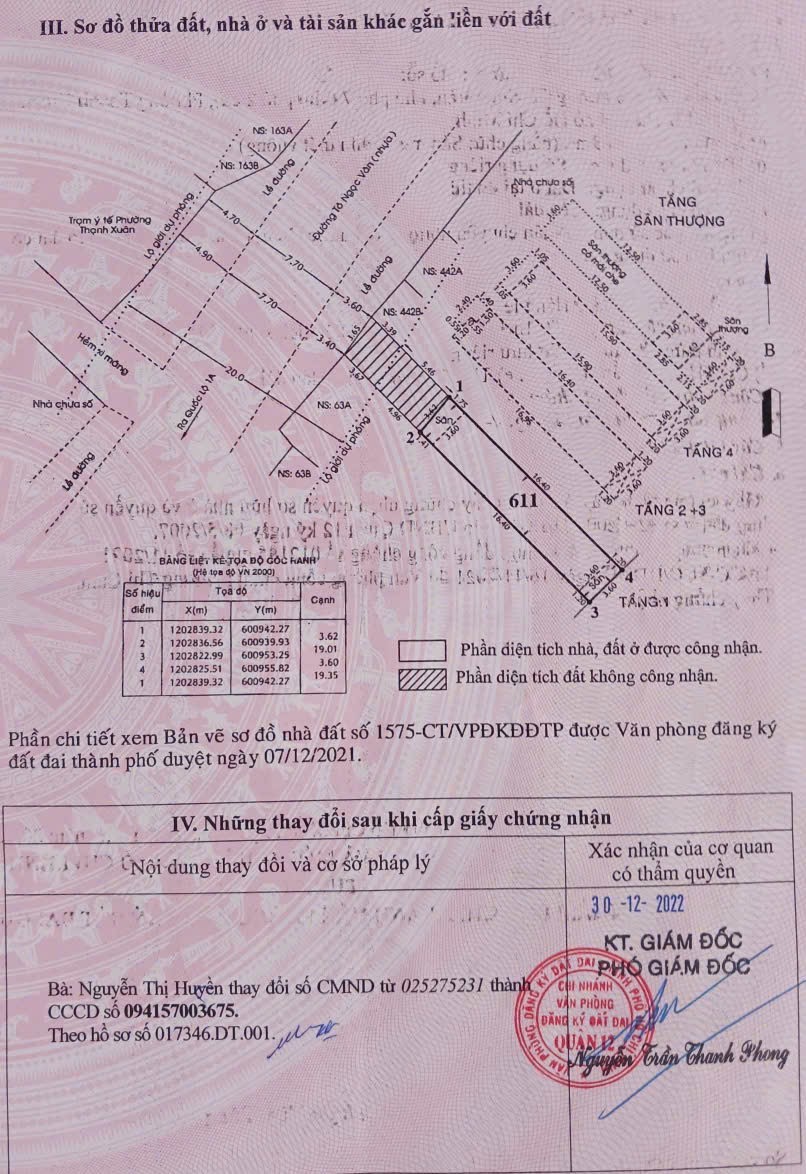 III. Sơ đồ thửa đất, nhà ở và tài sản khác gắn liền với đất
NS: 163A
NS: 163B
Lề đường
Đường Tô Ngọc Vân (nhựa)
Nhà chưa số
TẦNG
SÂN THƯỢNG
Trạm y tế Phường
Thạnh Xuân
Lộ giới dự phòng
4.70
4.90
7.70
7.70
3.60
3.40
Lề đường
NS: 442A
NS: 442B
Sân thượng
có mái che
12.50
12.50
3.60
Sân
thượng
B
Hẻm xi măng
20.0
Ra Quốc Lộ 1A
Nhà chưa số
Lề đường
NS: 63A
NS: 63B
Lộ giới dự phòng
3.65
3.39
5.46
3.67
4.96
3.62
1
1.75
Sân
3.60
2
15.90
15.90
16.40
16.96
TẦNG 4
TẦNG 2+3
611
16.40
16.40
3.60
Sân
3.60
4
3
TẦNG 1
BẢNG LIỆT KÊ TỌA ĐỘ GÓC RANH
(Hệ tọa độ VN 2000)
Số hiệu điểm Tọa độ Cạnh
X(m) Y(m)
1 1202839.32 600942.27
3.62
2 1202836.56 600939.93
19.01
3 1202822.99 600953.25
3.60
4 1202825.51 600955.82
19.35
1 1202839.32 600942.27
Phần diện tích nhà, đất ở được công nhận.
Phần diện tích đất không công nhận.
Phần chi tiết xem Bản vẽ sơ đồ nhà đất số 1575-CT/VPĐKĐĐTP được Văn phòng đăng ký
đất đai thành phố duyệt ngày 07/12/2021.
IV. Những thay đổi sau khi cấp giấy chứng nhận
Nội dung thay đổi và cơ sở pháp lý
Xác nhận của cơ quan
có thẩm quyền
30 -12- 2022
KT. GIÁM ĐỐC
PHÓ GIÁM ĐỐC
Bà: Nguyễn Thị Huyền thay đổi số CMND từ 025275231 thành
CCCD số 094157003675.
Theo hồ sơ số 017346.DT.001.
CHI NHÁNH
VĂN PHÒNG
ĐĂNG KÝ ĐẤT ĐAI
QUẬN 12
Nguyễn Trần Thanh Phong